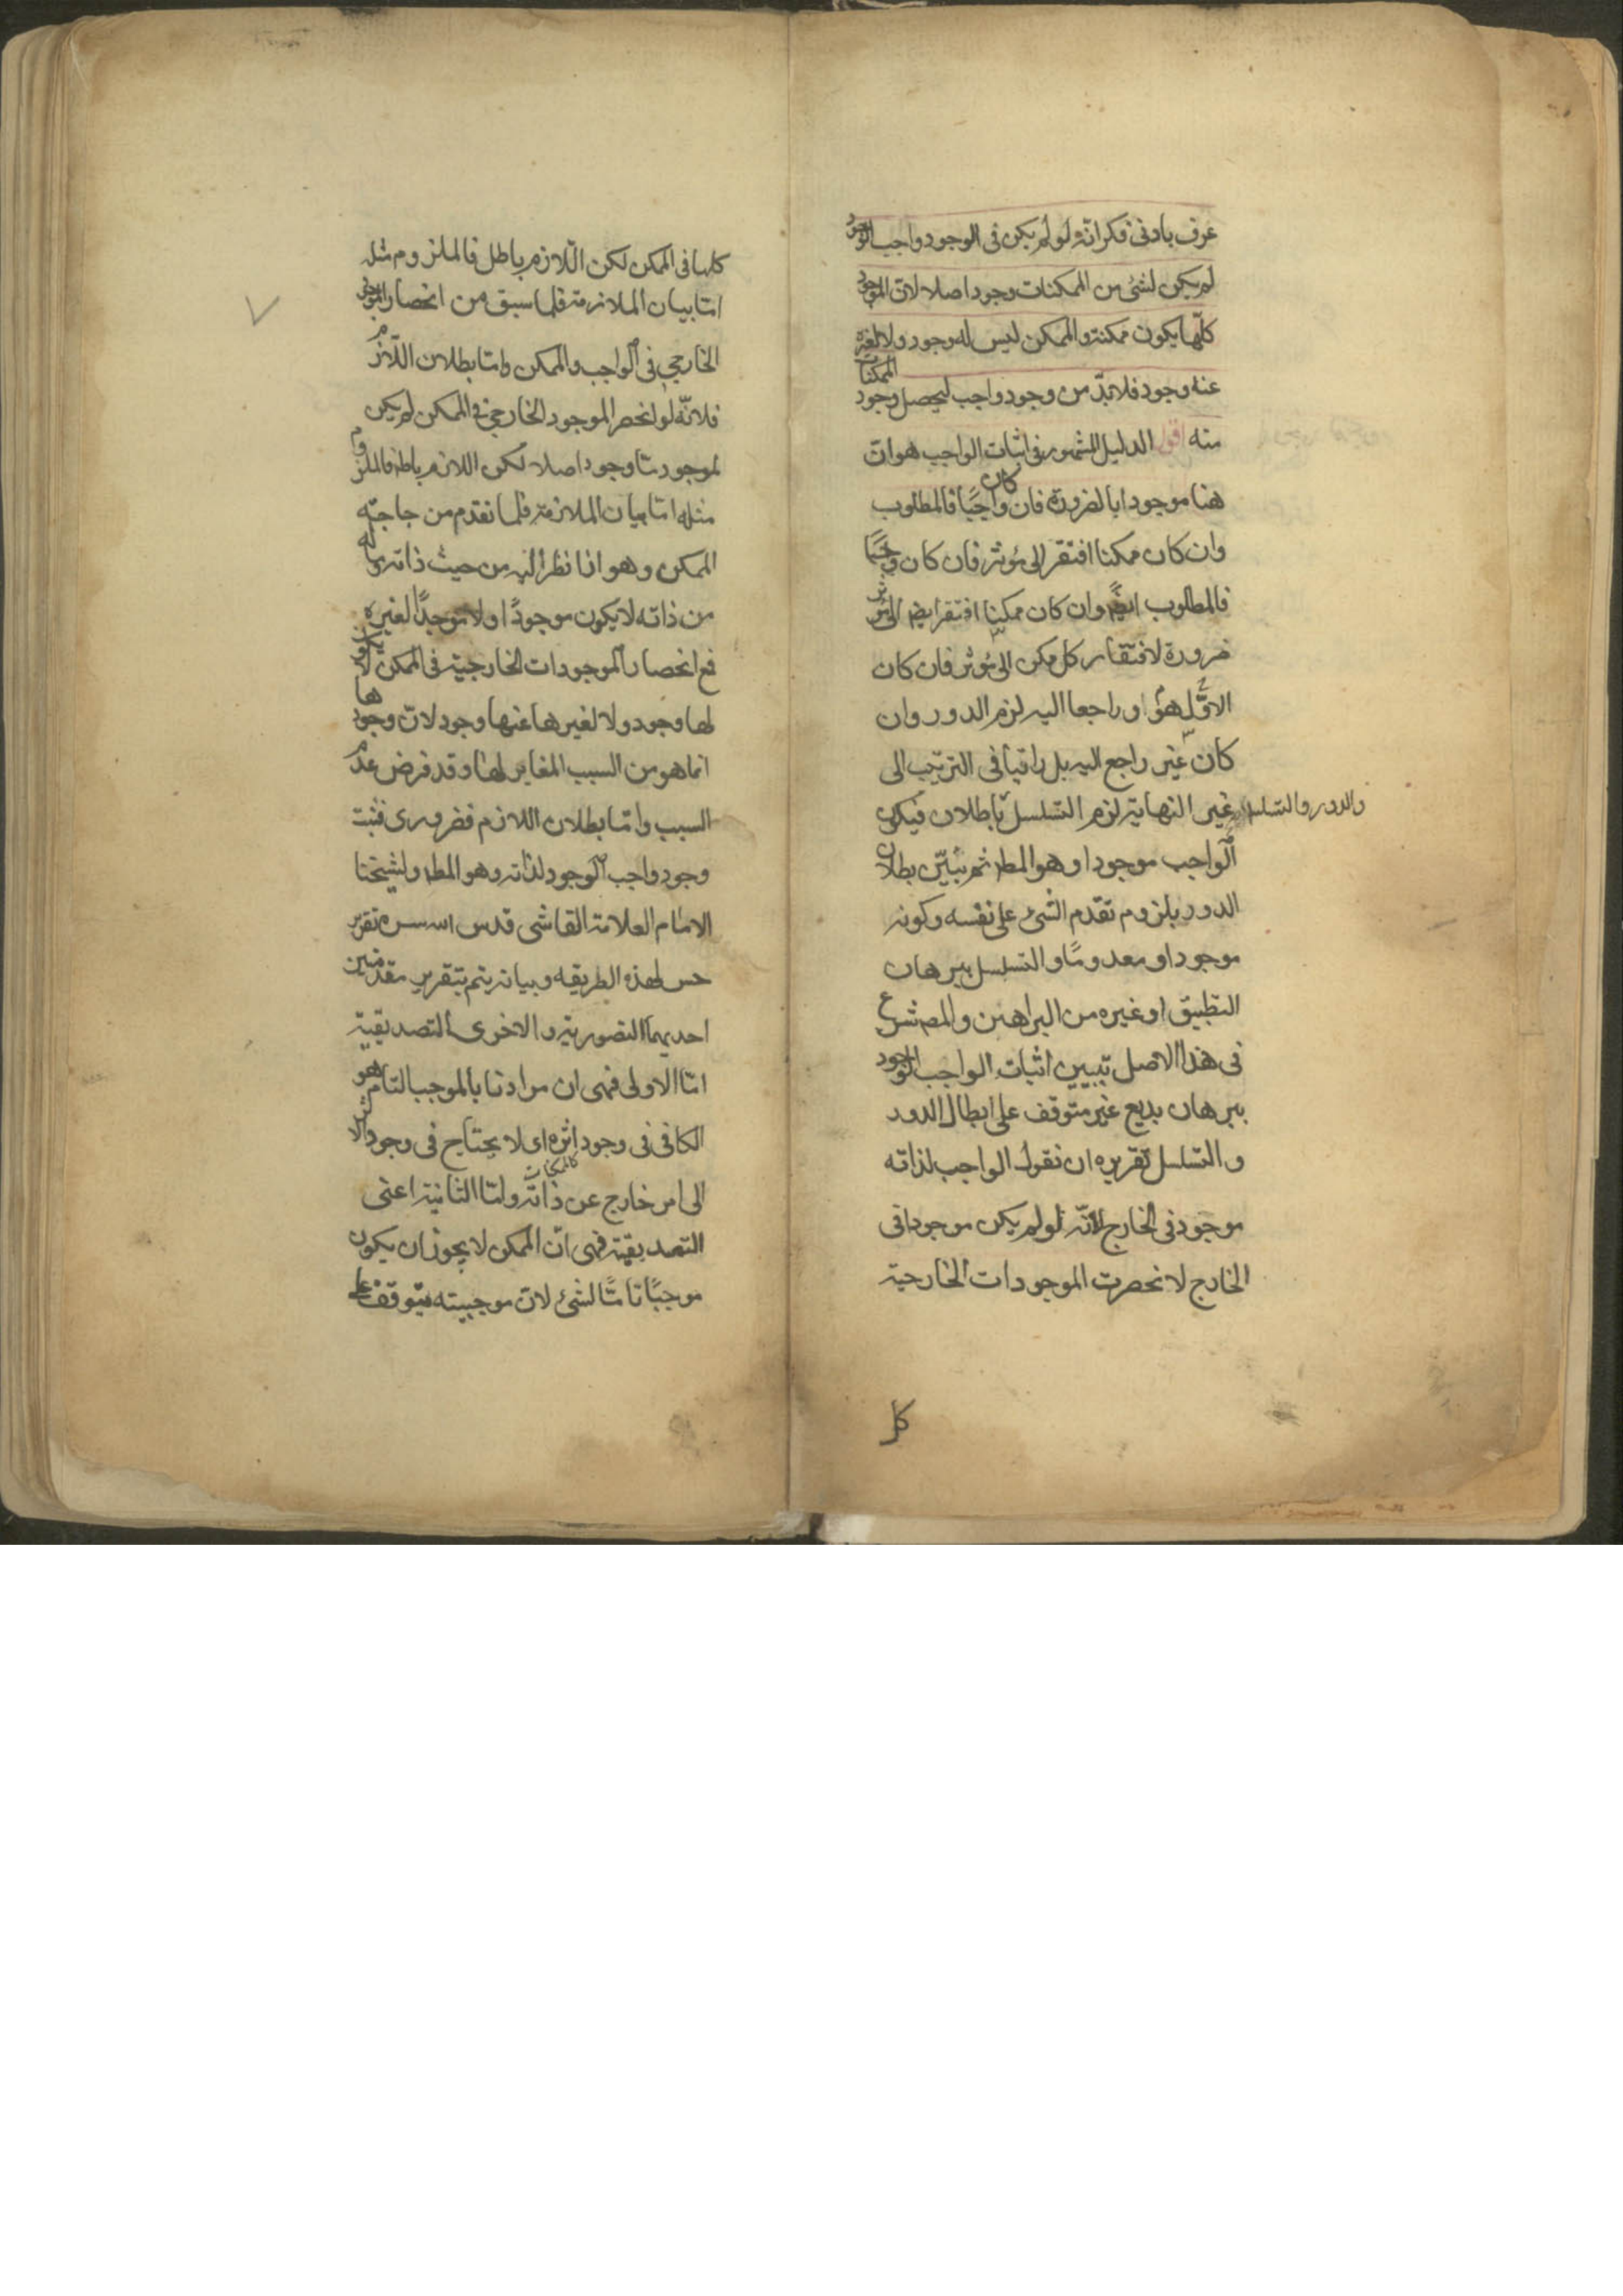 عرف بادنى فكر انّه لو لم يكن فى الوجود واجب الوجود
لم يكن لشئ من الممكنات وجود اصلا لانّ الموجودات
كلّها يكون ممكنة والممكن ليس له وجود ولا لغيره
عنه وجود فلا بدّ من وجود واجب ليحصل وجود الممكنات
منه اقول الدليل المشهور فى اثبات الواجب هو ان
هنا موجودا بالضرورة فان كان واجبًا فالمطلوب
وان كان ممكنا افتقر الى مؤثر فان كان واجبًا
فالمطلوب ايضًا وان كان ممكنا افتقر ايضا الى مؤثر
ضرورة لافتقار كل ممكن الى مؤثر فان كان
الاوّل هو او راجعا اليه لزم الدور وان
كان غير راجع اليه بل راقيا فى الترتيب الى
غير النهاية لزم التسلسل باطلان فيكون
والدور والتسلسل
الواجب موجودا وهو المط ثم يبيّن بطلان
الدور بلزوم تقدم الشئ على نفسه وكونه
موجودا ومعدومًا والتسلسل ببرهان
التطبيق او غيره من البراهين والمص شرع
فى هذا الاصل تبيين اثبات الواجب الوجود
ببرهان بديع غير متوقف على ابطال الدور
والتسلسل تقريره ان نقول الواجب لذاته
موجود فى الخارج لانّه لو لم يكن موجودا فى
الخارج لانحصرت الموجودات الخارجية
كل
كلها فى الممكن لكن اللازم باطل فالملزوم مثله
امّا بيان الملازمة فلما سبق من انحصار الموجود
الخارجي فى الواجب والممكن وامّا بطلان اللّازم
فلانّه لو انحصر الموجود الخارجي فى الممكن لم يكن
لموجود مّا وجود اصلا لكن اللازم باطل فالملزوم
مثله امّا بيان الملازمة فلما تقدم من حاجة
الممكن وهو اذا نظر اليه من حيث ذاته
من ذاته لا يكون موجودًا ولا موجدًا لغيره
فمع انحصار الموجودات الخارجية فى الممكن لا يكون
لها وجود ولا لغيرها عنها وجود لانّ وجودها
انما هو من السبب المغاير لها وقد فرض عدم
السبب وامّا بطلان اللازم فضرورى فثبت
وجود واجب الوجود لذاته وهو المط ولشيخنا
الامام العلامة القاشى قدس الله سره تقرير
حسن لهذه الطريقه وبيانه يتم بتقرير مقدمتين
احديهما التصورية والاخرى التصديقية
امّا الاولى فهى ان مرادنا بالموجب التام هو
الكافى فى وجود اثره اى لا يحتاج فى وجود الاثر
الى امر خارج عن ذاته وامّا الثانية اعنى
التصديقية فهى انّ الممكن لا يجوز ان يكون
موجبًا تامًّا لشئ لانّ موجبيته متوقف على